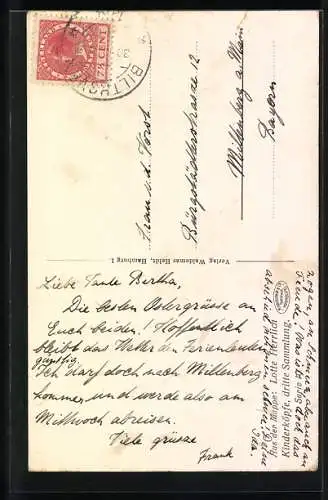 7½ CENT
BILTHOVEN
Frau v. d. Vorst
Bürgstädterstrasse 12
Miltenberg a. Main
Bayern
Verlag Waldemar Heldt, Hamburg 1.
Liebe Tante Bertha,
Die besten Ostergrüsse an
Euch beiden! Hoffentlich
bleibt das Wetter den Ferienleuten
günstig.
Ich darf doch nach Miltenberg
kommen und werde also am
Mittwoch abreisen.
Viele grüsse
Frank
Aus der Mappe: Lotte Herrlich
Kinderköpfe, dritte Sammlung.
an Schmerz als auch an
Freude!